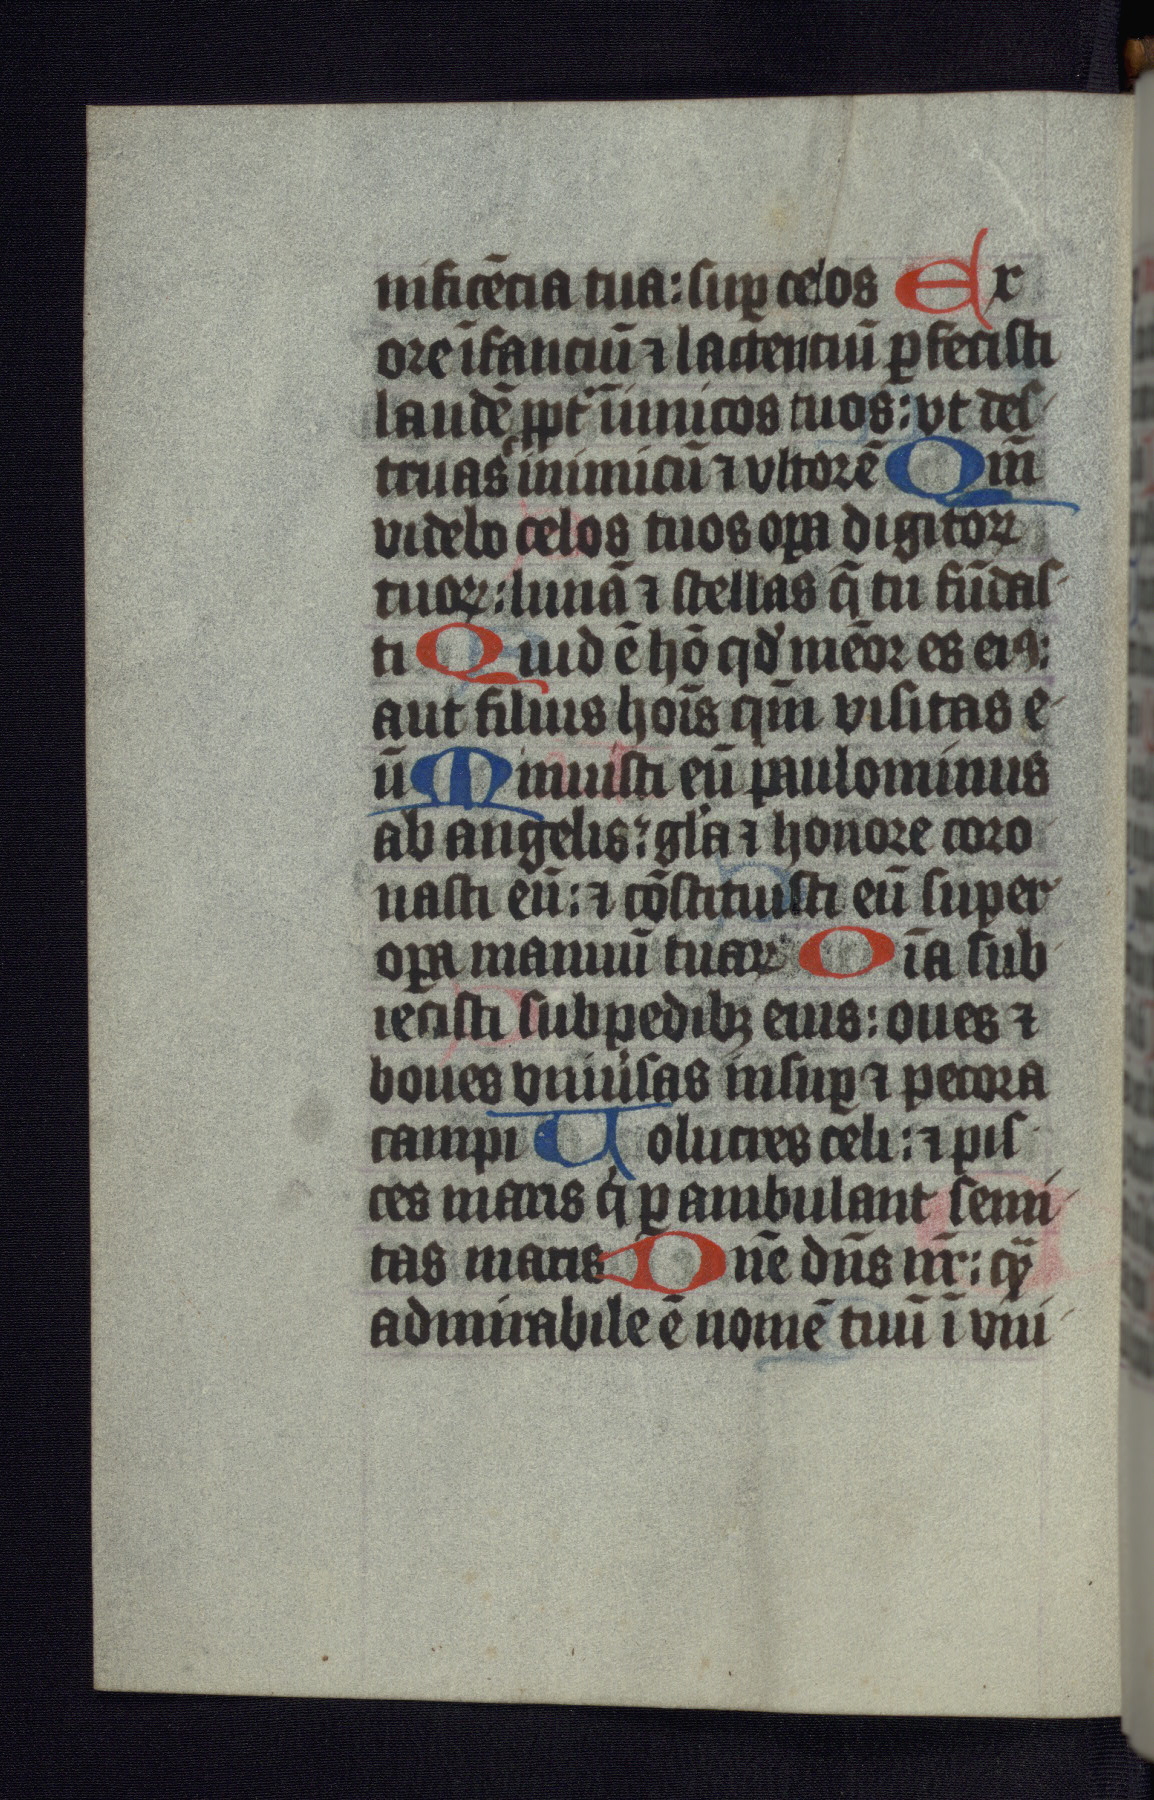 nificēcia tua: suꝑ celos Ex
ore īfanciū ⁊ lactenciū ꝑfecisti
laudē ꝓpt̄ inīmicos tuos: vt des
truas inimicū ⁊ vltorē Qm̄
videbo celos tuos oꝑa digitoꝝ
tuoꝝ: lunā ⁊ stellas q̄ tu fūdas
ti Quid ē hō qd' mēor es eiꝰ:
aut filius hoīs qm̄ visitas e
ū Minuisti eū paulominus
ab angelis: gl'a ⁊ honore coro
nasti eū: ⁊ cōstituisti eū super
oꝑa manuū tuaꝝ Oīa sub
iecisti sub pedibꝫ eius: oues ⁊
boues vniu'sas insuꝑ ⁊ pecora
campi Uolucres celi: ⁊ pis
ces maris q̇ ꝑambulant semi
tas maris Dn̄e dn̄s nr̄: qͣ
admirabile ē nomē tuū ī vni